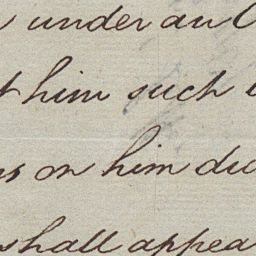 under an
him such
on him
shall appea